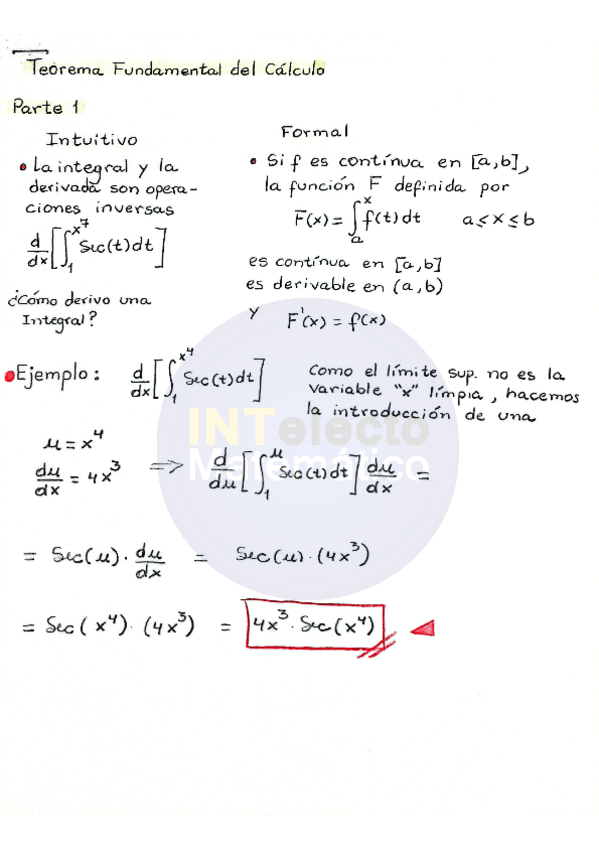 Teorema Fundamental del Cálculo
Parte 1
Intuitivo
• La integral y la
derivada son opera-
ciones inversas
d/dx [∫₁^x⁷ Sec(t)dt]
¿Cómo derivo una
Integral?
Formal
• Si f es contínua en [a,b],
la función F definida por
F(x) = ∫ₐˣ f(t)dt a≤x≤b
es contínua en [a,b]
es derivable en (a,b)
y F'(x) = f(x)
• Ejemplo: d/dx [∫₁^x⁴ Sec(t)dt]
Como el límite sup. no es la
variable "x" límpia, hacemos
la introducción de una
μ = x⁴
dμ/dx = 4x³ => d/dμ [∫₁^μ Sec(t)dt] dμ/dx =
= Sec(μ) · dμ/dx = Sec(μ) · (4x³)
= Sec(x⁴) · (4x³) = 4x³ · Sec(x⁴)
INTelecto
Matemático